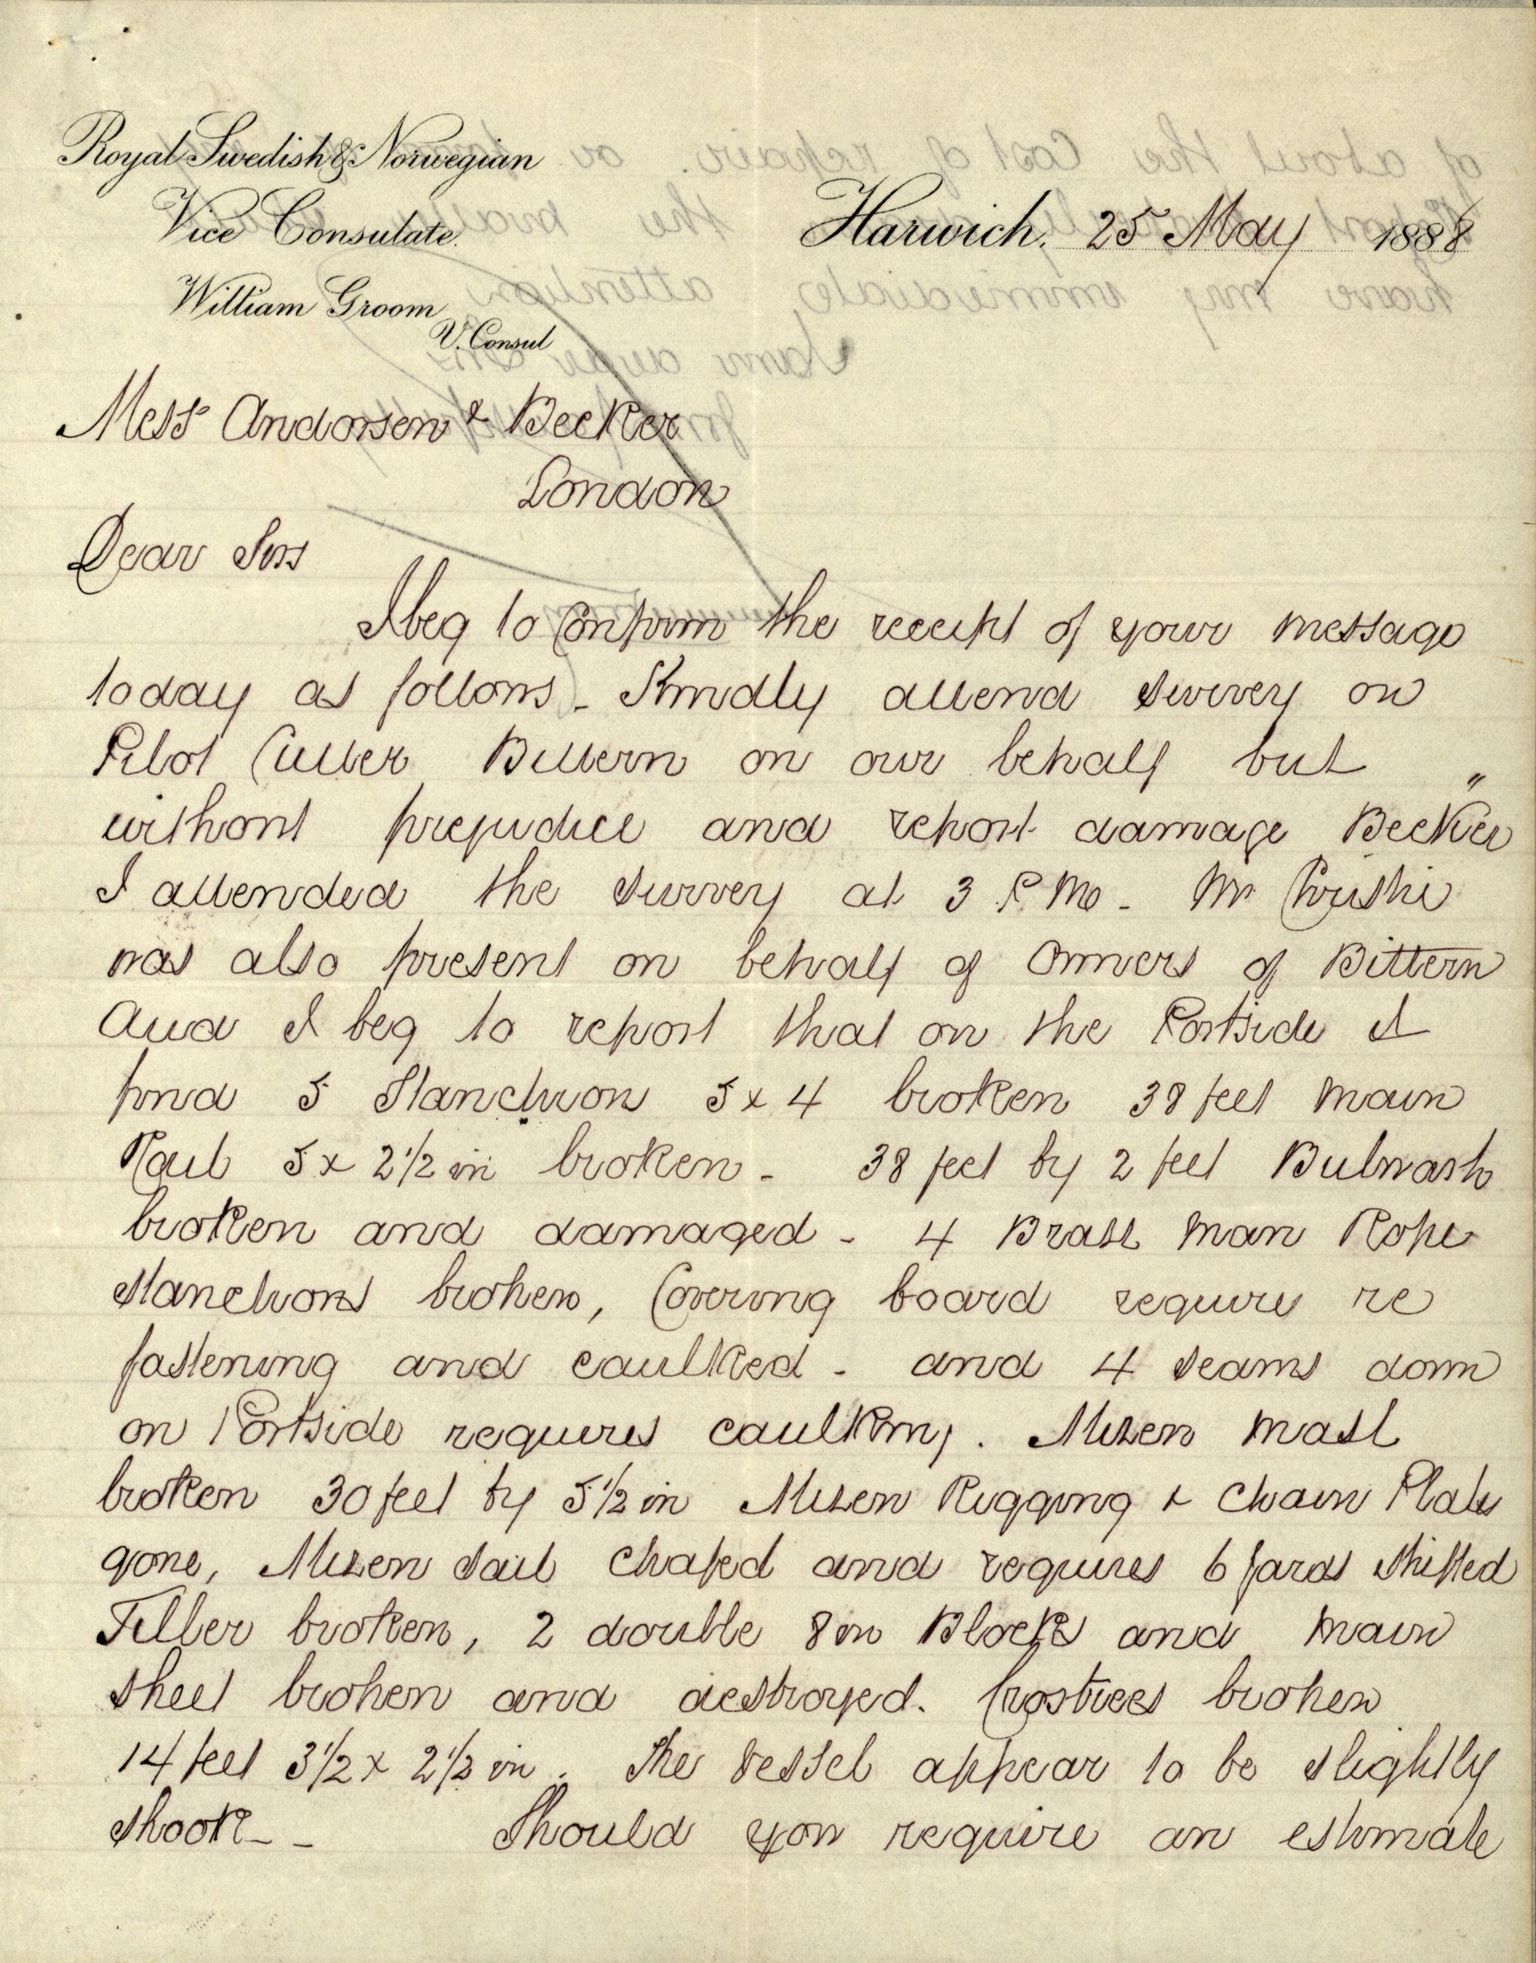 Royal Swedish & Norwegian
Vice Consulate.
Harwich, 25 May 1888
William Groom
V. Consul
Messrs Andorsen & Becker
London
Dear Sirs
I beg to Confirm the receipt of your message
today as follows - Kindly attend survey on
Pilot Cutter Bittern on our behalf but
without prejudice and report damage Becker "
I attended the survey at 3 P.M. - Mr Christie
was also present on behalf of Owners of Bittern
And I beg to report that on the Portside I
find 5 Stanchions 5 x 4 broken 38 feet Main
Rail 5 x 2 1/2 in broken - 38 feet by 2 feet Bulwark
broken and damaged - 4 Brass Man Rope
stanchions broken, Covering board require re
fastening and caulked - and 4 seams down
on Portside requires caulking. Mizen Mast
broken 30 feet by 5 1/2 in Mizen Rigging & Chain Plates
gone, Mizen Sail Chafed and requires 6 yards shifted
Tiller broken, 2 double 8 in Blocks and Main
sheet broken and destroyed. Crostrees broken
14 feet 3 1/2 x 2 1/2 in. The Vessel appear to be slightly
shook - - Should you require an estimate